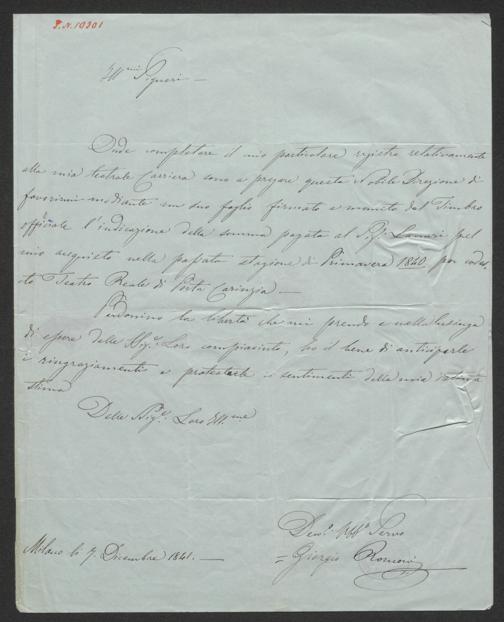 I.N. 10301
Ill.mi Signori —
Onde completare il mio particolare registro relativamente
alla mia teatrale Carriera sono a pregare questa Nobile Direzione di
favorirmi mediante un suo foglio firmato e munito del Timbro
officiale l'indicazione della somma pagata al Sig. Lanari pel
mio acquisto nella passata stagione di Primavera 1840 per codes-
to Teatro Reale di Porta Carinzia —
Perdonino la libertà che mi prendo e nella lusinga
di essere dalle Sig.e Loro compiacinto, ho il bene di anticiparle
i ringraziamenti e protestarle i sentimenti della mia
stima
Delle Sig.e Loro Ill.me
Dev.o Servo
= Giorgio Ronconi
Milano li 7. Dicembre 1841. —